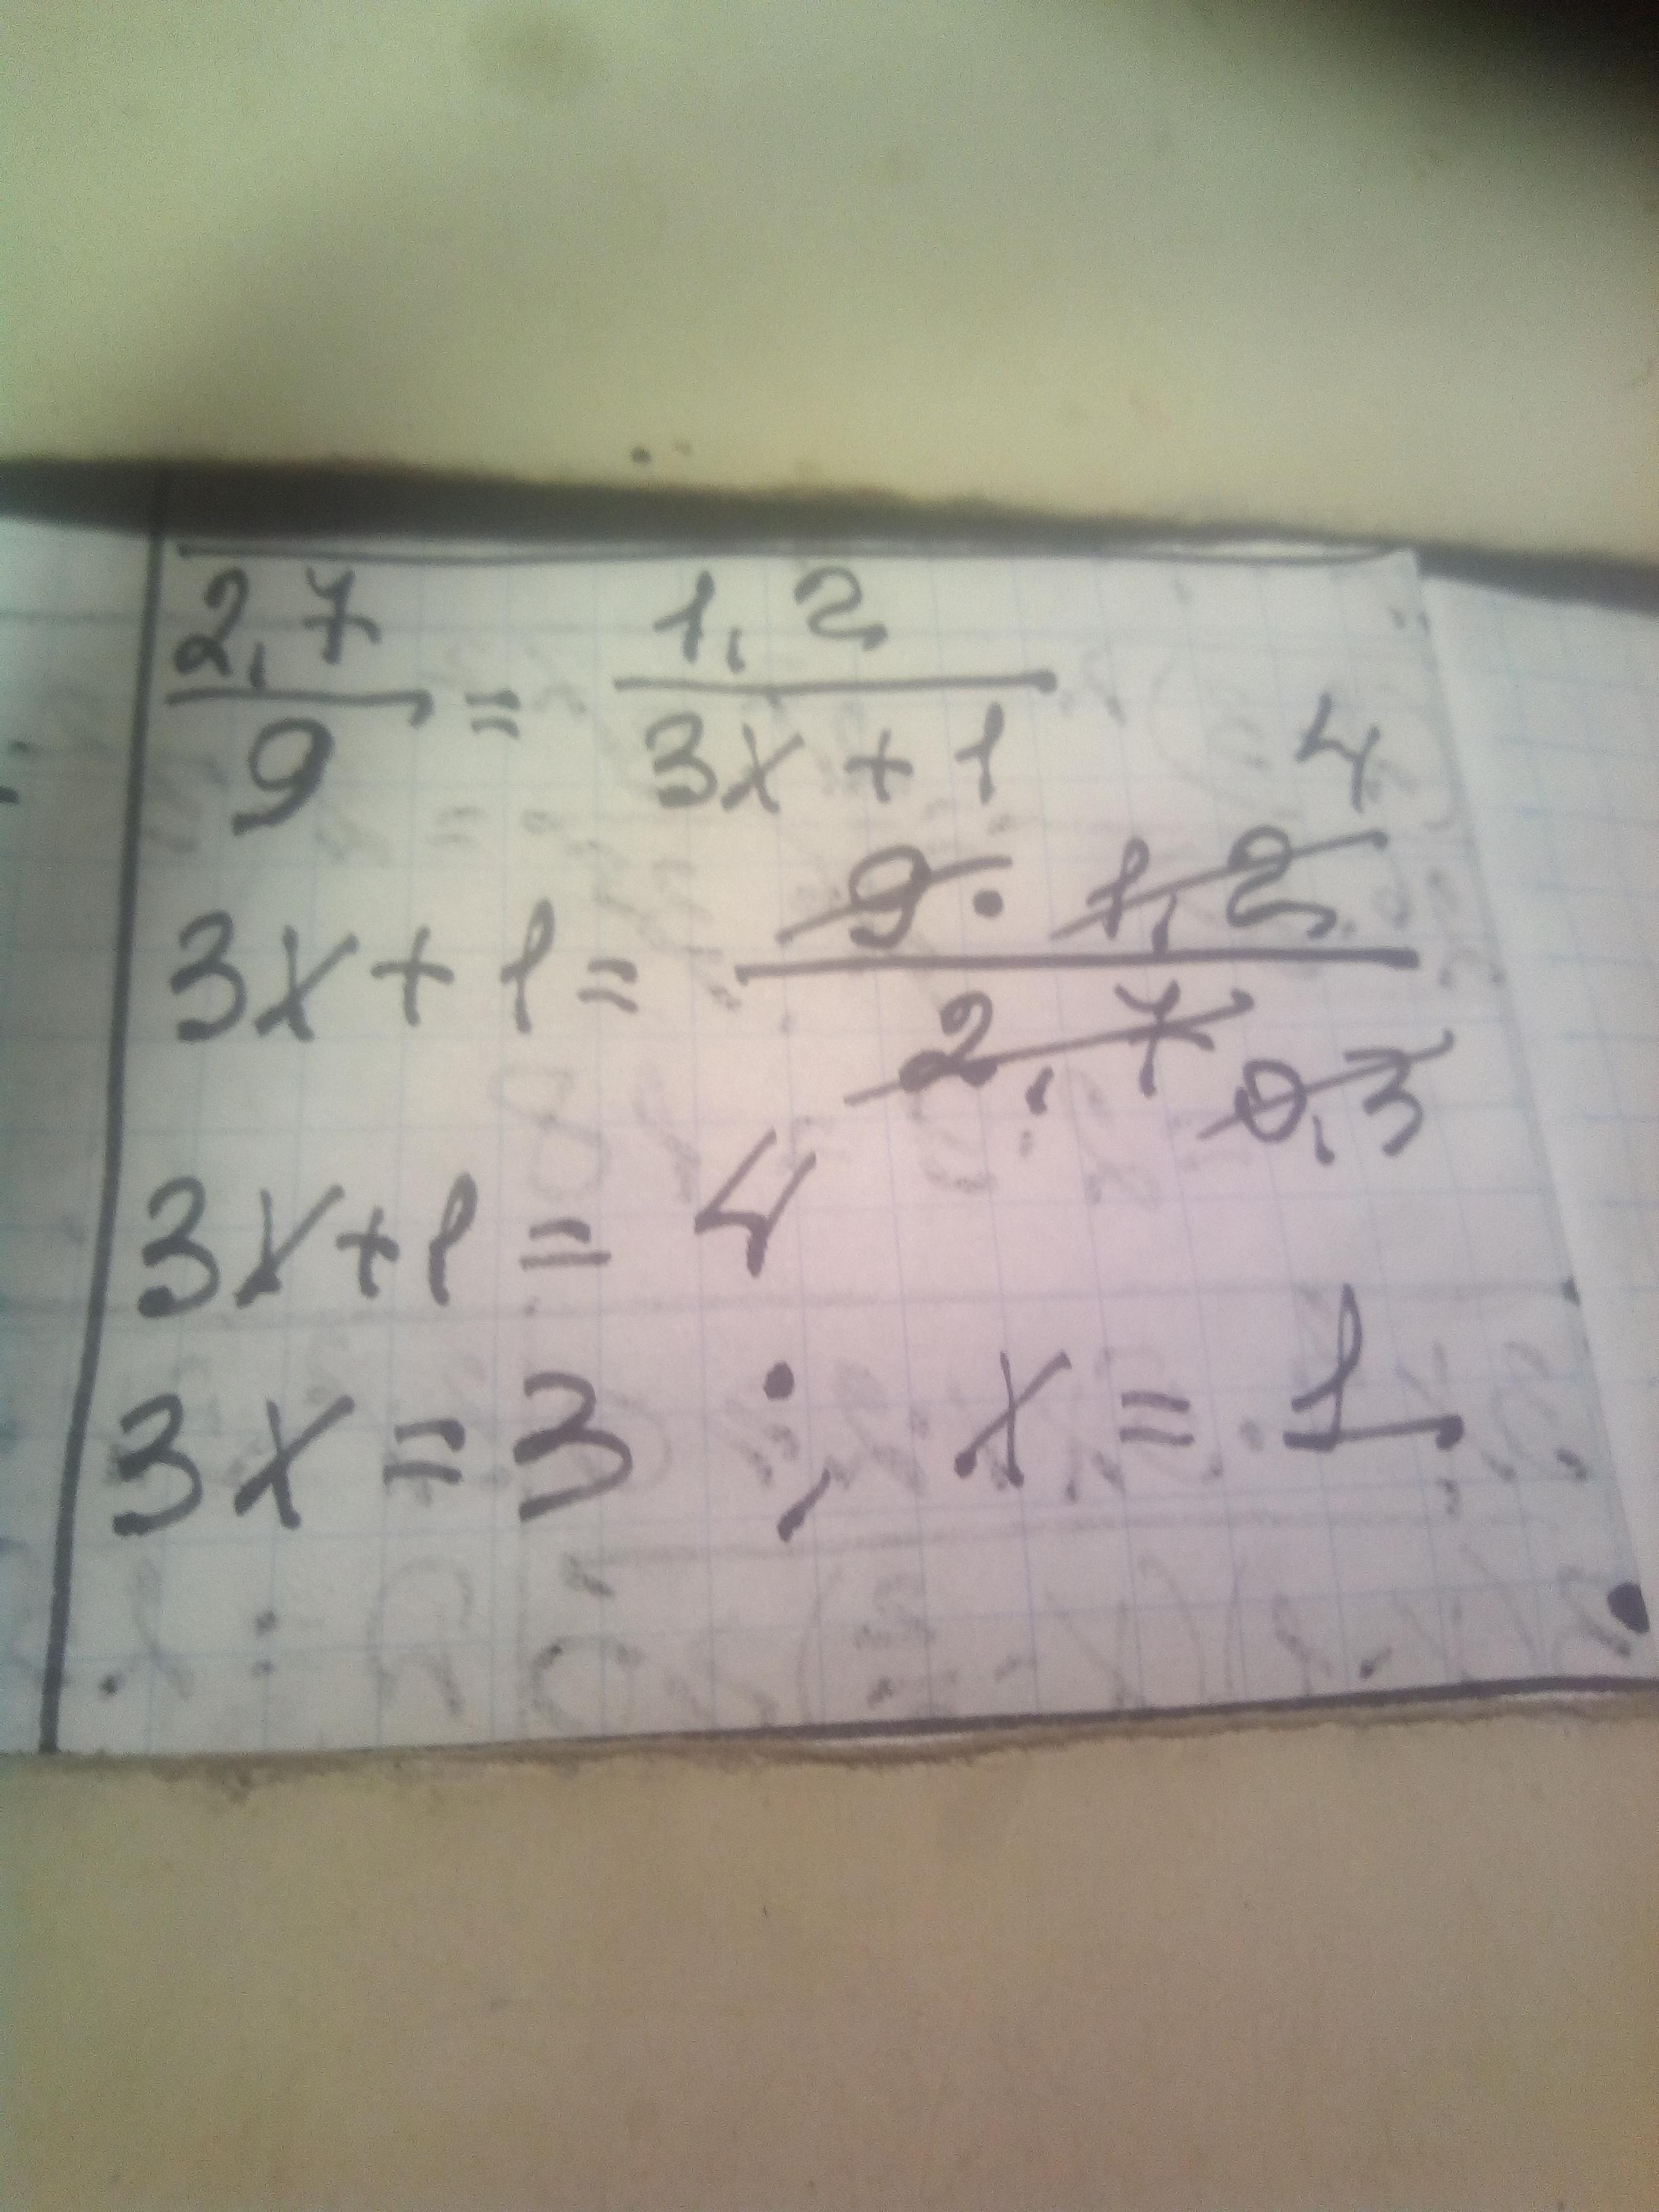 2,7/9 = 1,2/(3x + 1)
3x + 1 = (9 · 1,2)/2,7 0,3 4
3x + 1 = 4
3x = 3 ; x = 1